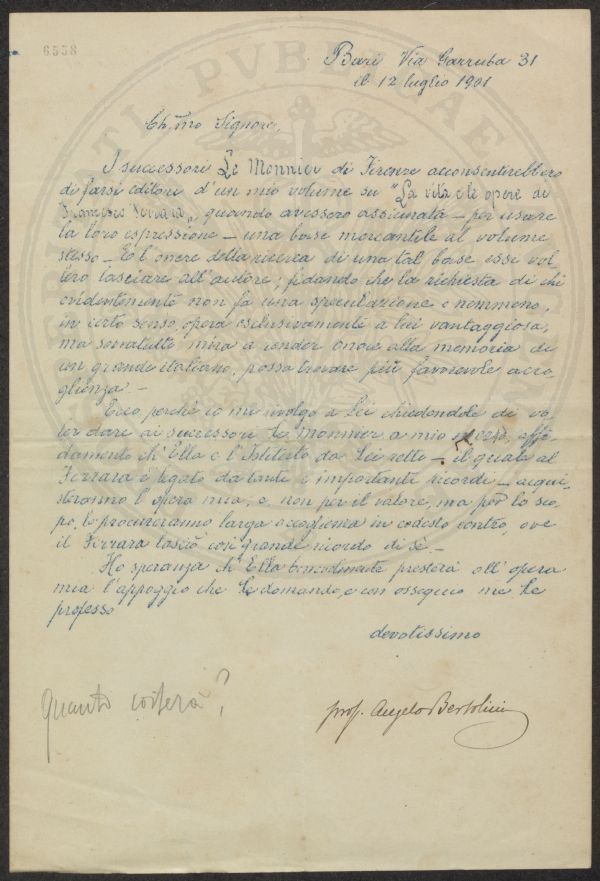 6558
Bari Via Garruba 31
il 12 luglio 1901
Ch.mo Signore,
I successori Le Monnier di Firenze acconsentirebbero
di farsi editori d'un mio volume su "La vita e le opere di
Francesco Ferrara", quando avessero assicurata – per usare
la loro espressione – una base mercantile al volume
stesso – E l'onere della ricerca di una tal base essi vol-
lero lasciare all'autore; fidando che la richiesta di chi
evidentemente non fa una speculazione e nemmeno,
in certo senso, opera esclusivamente a lui vantaggiosa,
ma soprattutto mira a render onore alla memoria di
un grande italiano, possa trovare più favorevole acco-
glienza. –
Ecco perchè io mi rivolgo a Lei chiedendole di vo-
ler dare ai successori Le Monnier, a mio mezzo, affi-
damento ch'Ella e l'Istituto da Lei retto – il quale al
Ferrara è legato da tanti e importanti ricordi – acqui-
steranno l'opera mia, e, non per il valore, ma per lo sco-
po, le procureranno larga accoglienza in codesto centro, ove
il Ferrara lasciò così grande ricordo di sè. –
Ho speranza ch'Ella benevolmente presterà all'opera
mia l'appoggio che Le domando, e con ossequio me Le
professo
devotissimo
prof. Angelo Bertolini
Quanto costerà?
PVBLICAE